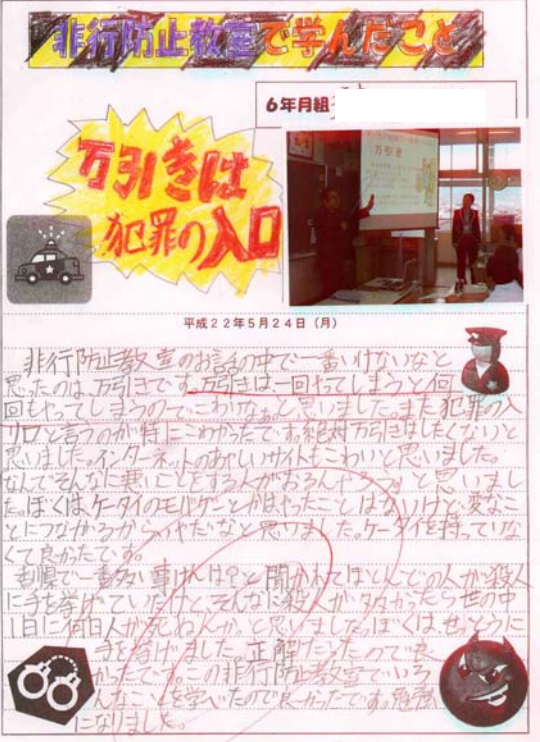 非行防止教室で学んだこと
6年月組
万引き
万引きは
犯罪の入口
平成22年5月24日(月)
非行防止教室のお話の中で一番いけないなと
思ったのは、万引きです。万引きは一回やってしまうと何
回もやってしまうのでこわいなぁと思いました。また犯罪の入
り口と言うのが特にこわかったです。絶対万引きはしたくないと
思いました。インターネットのあやしいサイトもこわいと思いました。
なんでそんなに悪いことをする人がおるんやろう。と思いまし
た。ぼくは、ケータイのモバゲーとかはやったことはないけど、変なこ
とにつながるからいやだなと思いました。ケータイを持っていな
くて良かったです。
県で一番多い事けんは?と聞かれてほとんどの人が殺人
に手を挙げていたけど、そんなに殺人が多かったら世の中
1日に何百人が死ねんか。と思いました。ぼくは、せっとうに
手を挙げました。正解だったので良
かったです。この非行防止教室でいろ
んなことを学べたので良かったです。勉強
になりました。